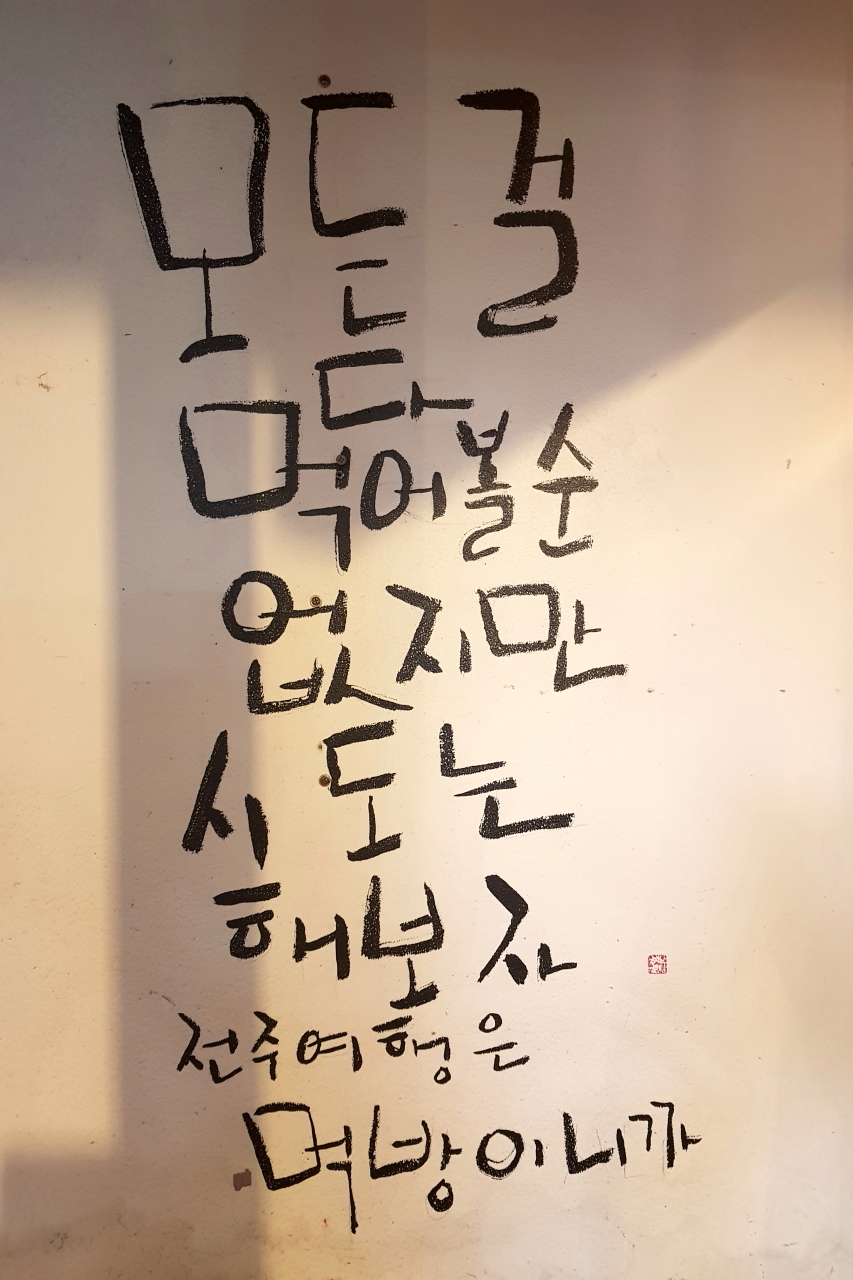 모든 걸
다
먹어볼 순
없지만
시도는
해보자
전주여행은
먹방이니까